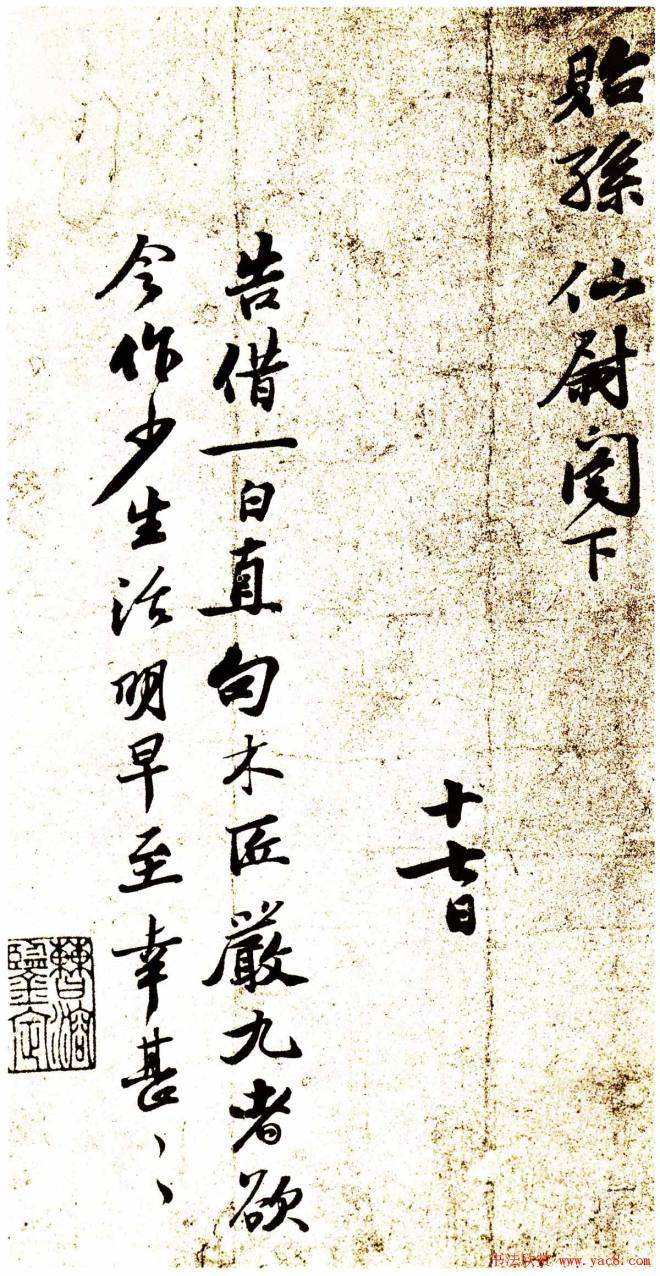 貽孫仙尉閣下
十七日
告借一白直句木匠嚴九者欲
令作少生活明早至幸甚〻〻
曹溶
鑒定
书法欣赏 www.yac8.com